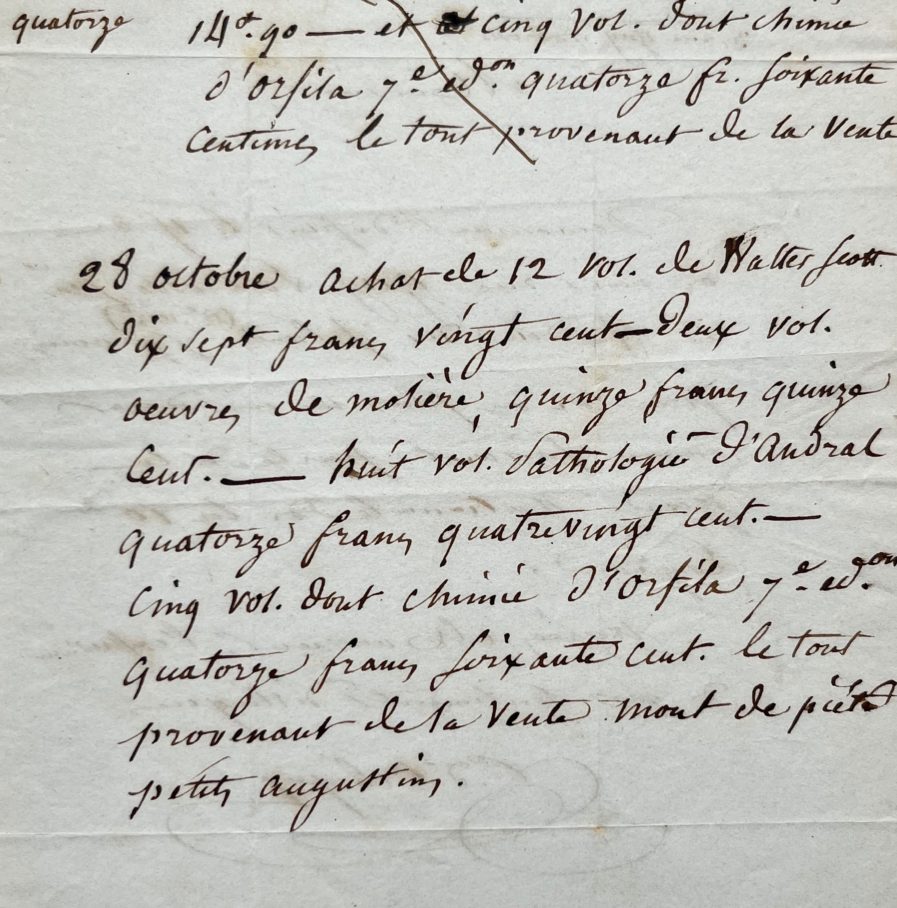 quatorze 14 fr. 90 — et cinq vol. dont chimie
d'orfila 7.e ed.on quatorze fr. soixante
centimes le tout provenant de la vente
28 octobre achat de 12 vol. de Walter Scott
dix sept francs vingt cent — deux vol.
oeuvres de molière, quinze francs quinze
cent. — huit vol. Pathologie d'Andral
quatorze francs quatrevingt cent. —
Cinq vol. dont chimie d'Orfila 7.e ed.on
quatorze francs soixante cent. le tout
provenant de la vente mont de piété
petits augustins.